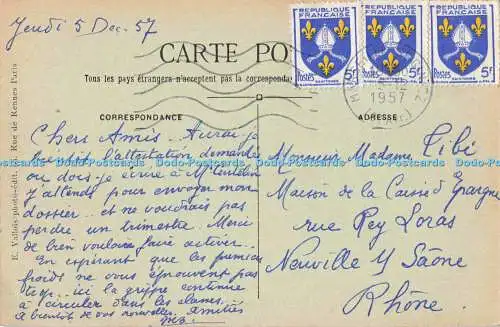 Jeudi 5 Dec. 57
CARTE PO
Tous les pays étrangers n'acceptent pas la correspondance
REPUBLIQUE FRANÇAISE
POSTES 5F
SAINTONGE
REPUBLIQUE FRANÇAISE
POSTES 5F
SAINTONGE
REPUBLIQUE FRANÇAISE
POSTES 5F
SAINTONGE
1957
CORRESPONDANCE
ADRESSE
Chers Amis.. Aurai-je
bientôt l'attestation demandée
ou dois-je écrire à
j'attends pour envoyer mon
dossier.. et ne voudrais pas
perdre un trimestre. Merci
de bien vouloir faire activer..
En espérant que les premiers
froids ne vous éprouvent pas
trop.. ici la grippe continue
à circuler dans les classes..
à bientôt de vos nouvelles. Amitiés
Monsieur Madame Tibi
Maison de la Caisse d'Epargne
rue Rey Loras
Neuville s/ Saône
Rhône.
E. Vallois photo-édit. Rue de Rennes Paris
Postcards Dado-Postcards Dado-Postcards Dado-Postcards